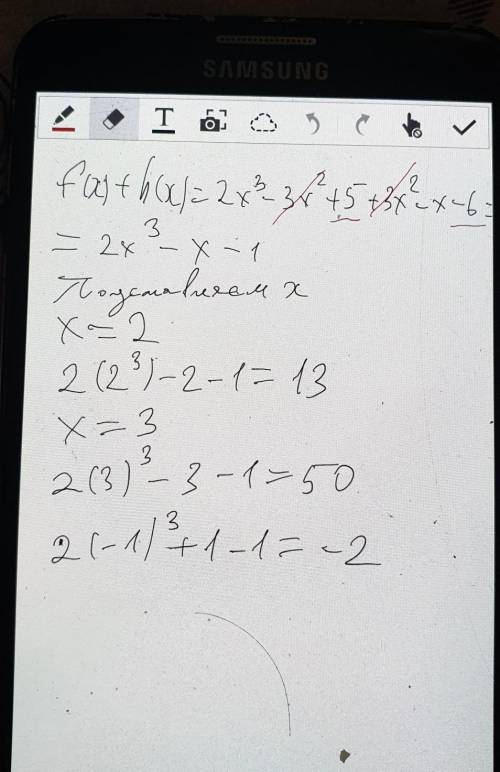 SAMSUNG
T
f(x) + h(x) = 2x³ - 3x² + 5 + 3x² - x - 6 =
= 2x³ - x - 1
Подставляем x
x = 2
2(2³) - 2 - 1 = 13
x = 3
2(3)³ - 3 - 1 = 50
2(-1)³ + 1 - 1 = -2